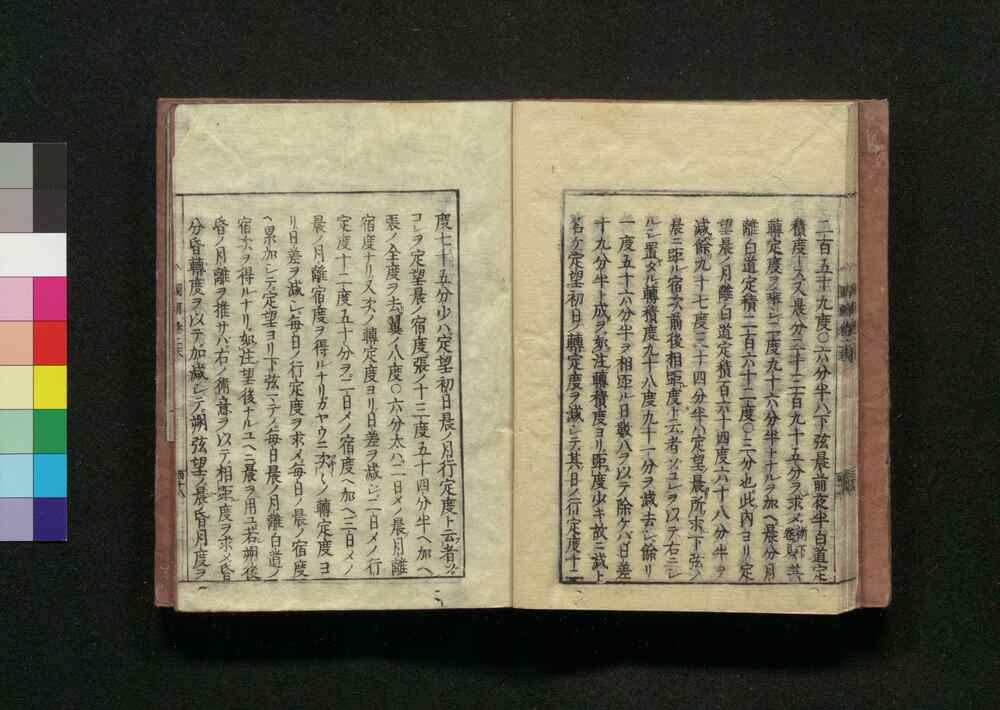 二百五十九度〇六分半ハ下弦晨前夜半白道定
積度ナリ又晨分二千二百九十五分ヲ求メ
轉定度ヲ乗シ二度九十六分半トナルヲ加ヘ晨分月
離白道定積二百六十二度〇三分也此内ヨリ定
望晨ノ月離白道定積百六十四度六十八分半ヲ
減餘九十七度三十四分半ハ定望晨所求下弦ノ
晨ニ距ル宿次前後相距度ト云者ソコレヲ以テ右ニシ
ルシ置タル轉積度九十八度九十一分ヲ減去レ餘リ
一度五十六分半ヲ相距ル日数八ヲ以テ除ケバ日差
十九分半ト成ヲ如注轉積度ヨリ距度少キ故ニ減ト
名ケ定望初日ノ轉定度ヲ減シテ其日ノ行定度十二
度七十五分少ハ定望初日晨ノ月行定度ト云者ソ
コレヲ定望晨ノ宿度張ノ十三度五十四分半ヘ加ヘ
張ノ全度ヲ去翼ノ八度〇六分太ハ二日メノ晨月離
宿度ナリ又次ノ轉定度ヨリ日差ヲ減シ二日メノ行
定度十二度五十分ヲ二日メノ宿度ヘ加ヘ三日メノ
晨ノ月離宿度ヲ得ルナリカヤウニ次〱ノ轉定度ヨ
リ日差ヲ減シ毎日ノ行定度ヲ求メ毎日ノ晨ノ宿度
ヘ累加シテ定望ヨリ下弦マテノ毎日晨ノ月離白道ノ
宿次ヲ得ルナリ如注望後ナルユヘニ晨ヲ用ユ若朔後
昏ノ月離ヲ推サハ右ノ術意ヲ以テ相距度ヲ求メ昏
分昏轉度ヲ以テ加減シテ朔弦望ノ晨昏月度ヲ